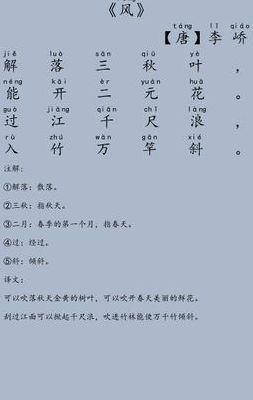 《风》
táng lǐ qiáo
【唐】李峤
jiě luò sān qiū yè
解落三秋叶，
néng kāi èr yuán huā
能开二元花。
guò jiāng qiān chǐ làng
过江千尺浪，
rù zhú wàn gān xié
入竹万竿斜。
注解：
①解落：散落。
②三秋：指秋天。
③二月：春季的第一个月，指春天。
④过：经过。
⑤斜：倾斜。
译文：
可以吹落秋天金黄的树叶，可以吹开春天美丽的鲜花。
刮过江面可以掀起千尺浪，吹进竹林能使万千竹倾斜。